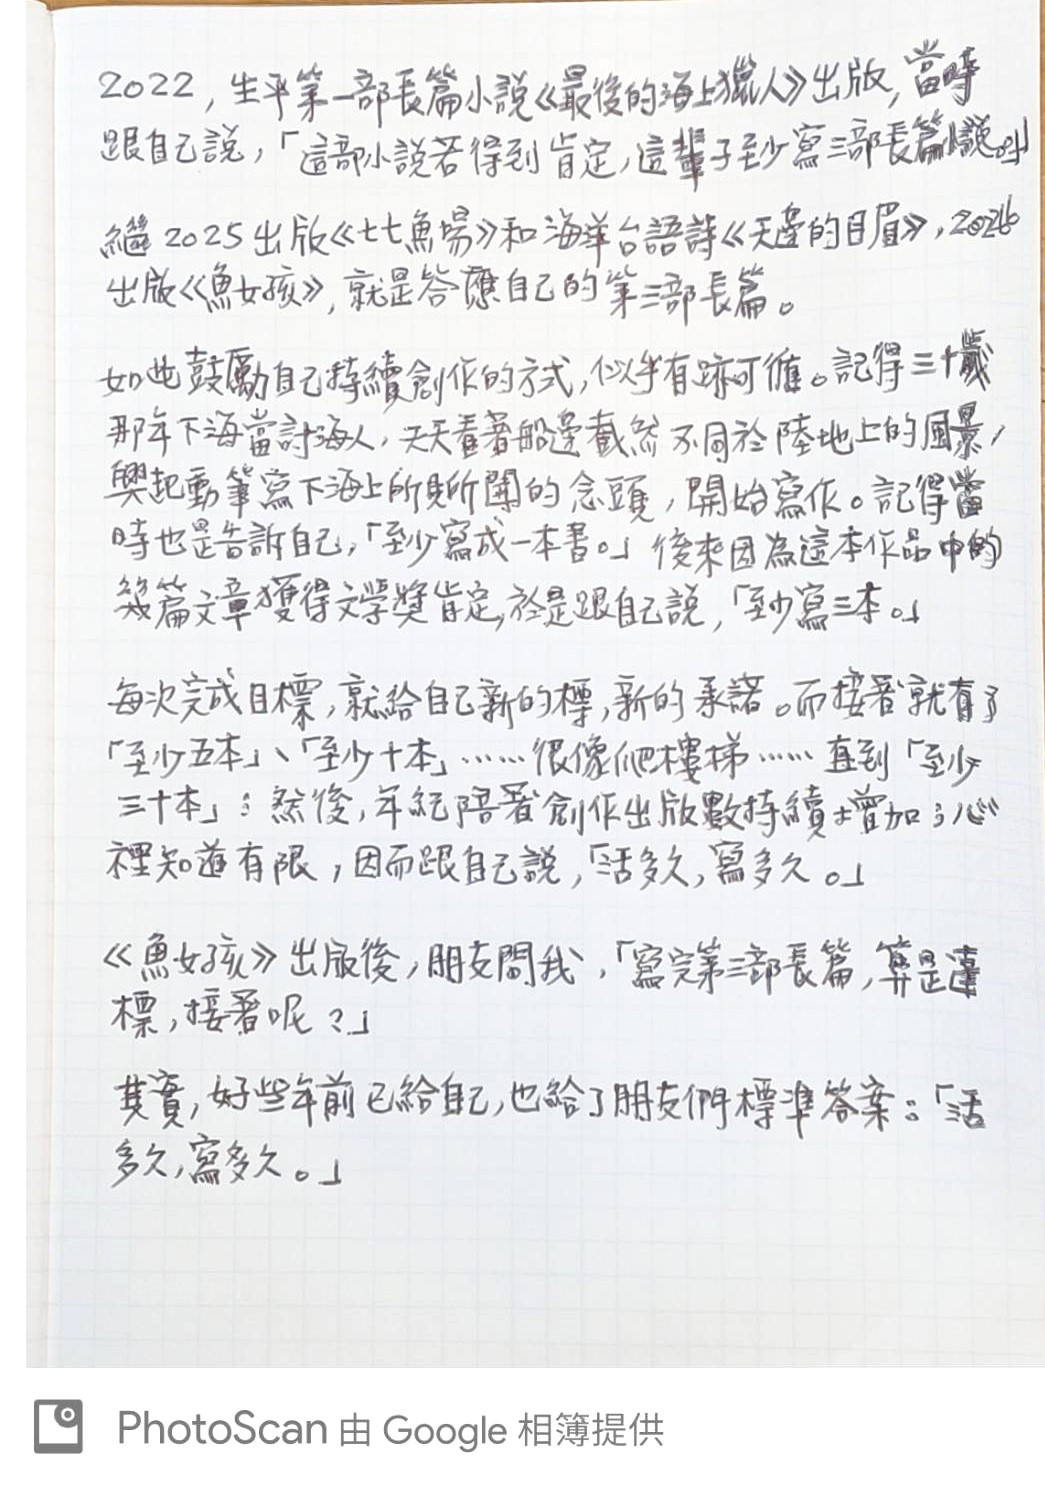 2022，生平第一部長篇小說《最後的海上獵人》出版，當時
跟自己說，「這部小說若得到肯定，這輩子至少寫三部長篇小說。」
繼2025出版《七七魚場》和海洋台語詩《天邊的目眉》，2026
出版《魚女孩》，就是答應自己的第三部長篇。
如此鼓勵自己持續創作的方式，似乎有跡可循。記得三十歲
那年下海當討海人，天天看著船邊截然不同於陸地上的風景，
興起動筆寫下海上所見所聞的念頭，開始寫作。記得當
時也是告訴自己，「至少寫成一本書。」後來因為這本作品中的
幾篇文章獲得文學獎肯定，於是跟自己說，「至少寫三本。」
每次完成目標，就給自己新的標，新的承諾。而接著就有了
「至少五本」、「至少十本」……很像爬樓梯……直到「至少
三十本」；然後，年紀陪著創作出版數持續增加；心
裡知道有限，因而跟自己說，「活多久，寫多久。」
《魚女孩》出版後，朋友問我，「寫完第三部長篇，算是達
標，接著呢？」
其實，好些年前已給自己，也給了朋友們標準答案：「活
多久，寫多久。」
PhotoScan 由 Google 相簿提供